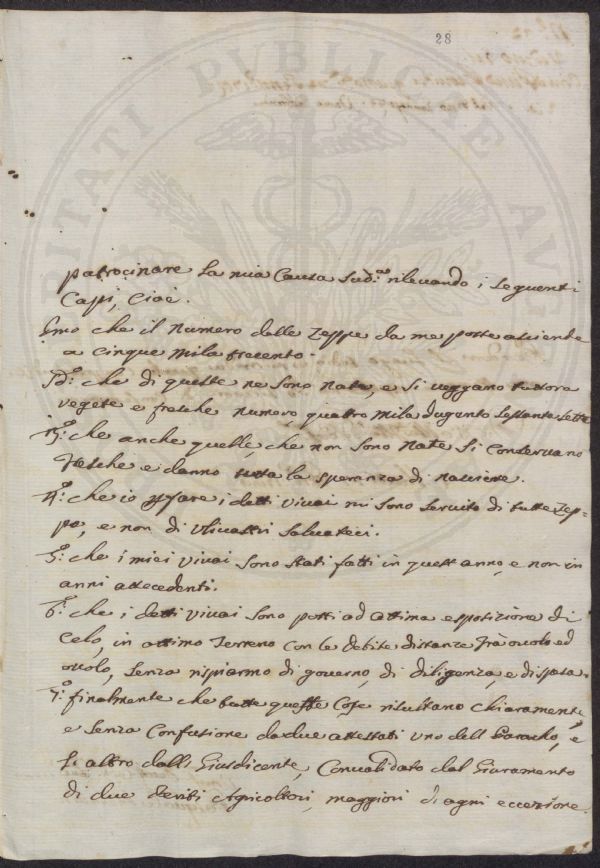 28
patrocinare la mia Causa sud.ª rilevando i seguenti
Capi, Cioè.
Pmo che il Numero delle Zeppe da me poste ascende
a Cinque mila trecento.
2do: che di queste ne sono nate, e si veggano tuttora
vegete e fresche numero quattro mila dugento sessantasette
3º: che anche quelle, che non sono nate si conservano
fresche e danno tutta la speranza di nascere.
4º: che io p fare i detti vivai mi sono servito di tutte Zep-
pe, e non di Ulivastri salvateci.
5º: che i miei vivai sono stati fatti in quest anno, e non in
anni attecedenti.
6º: che i detti vivai sono posti ad ottima esposizione di
Celo, in ottimo Terreno con le debite distanze frà ovolo ed
ovolo, senza risparmo di governo, di diligenza, e di spesa.
7º: finalmente che tutte queste Cose risultano chiaramente,
e senza Confusione da due attestati uno dell Parocho, e
l'altro dalli Giusdicente, Convalidato dal Giuramento
di due Periti Agricoltori, maggiori di ogni eccezione.
DITATI PUBLICAE